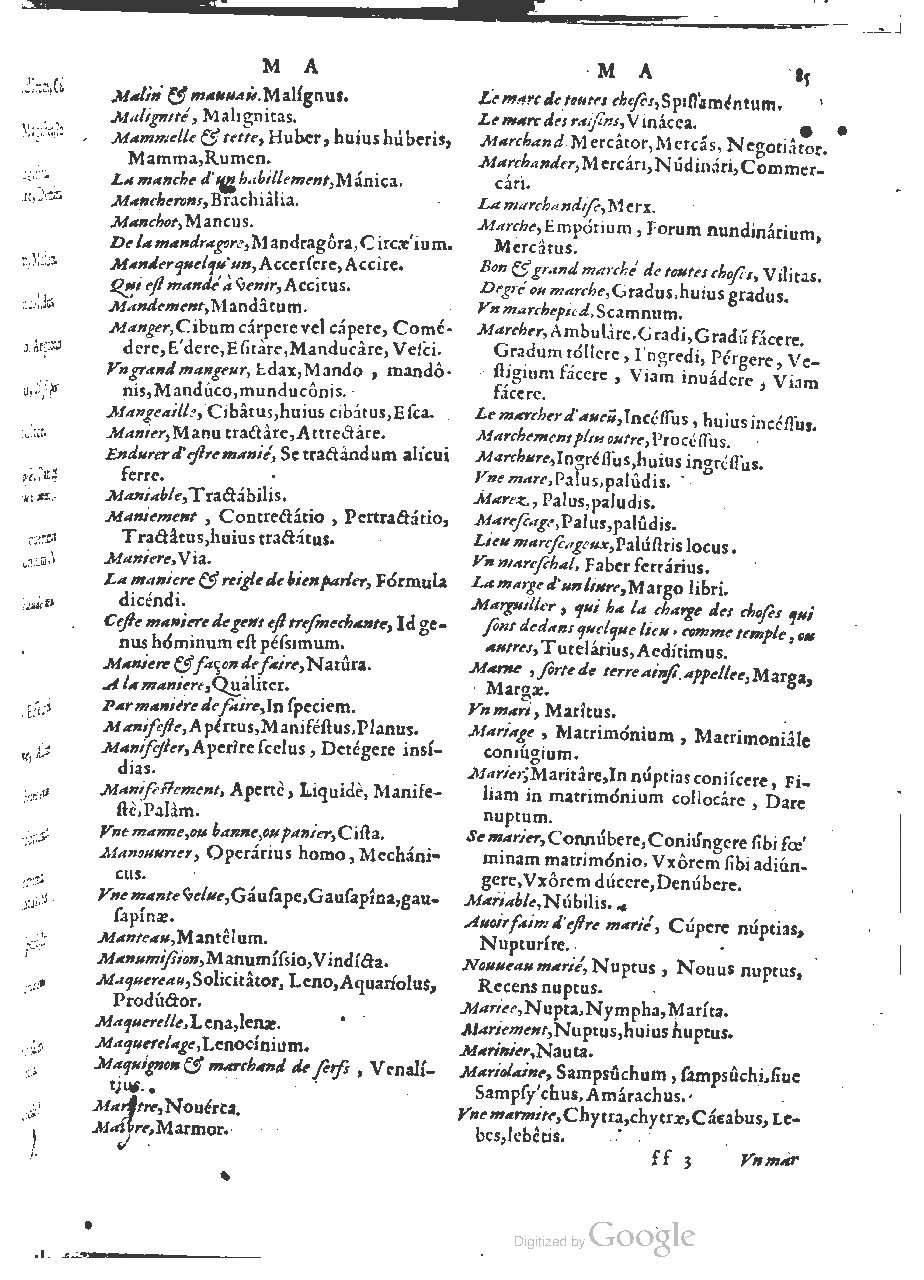 M A
Malin & mauuais. Malígnus.
Malignité, Malignitas.
Mammelle & tette, Huber, huius húberis,
Mamma, Rumen.
La manche d'un habillement, Mánica.
Mancherons, Brachiâlia.
Manchot, Mancus.
De la mandragore, Mandragôra, Circæ'ium.
Mander quelqu'un, Accersere, Accire.
Qui est mandé à venir, Accitus.
Mandement, Mandâtum.
Manger, Cibum cárpere vel cápere, Comé-
dere, E'dere, Esitàre, Manducâre, Vesci.
Vn grand mangeur, Edax, Mando, mandô-
nis, Mandúco, munducônis.
Mangeaille, Cibâtus, huius cibátus, Esca.
Manier, Manu tractâre, Attrectâre.
Endurer d'estre manié, Se tractándum alícui
ferre.
Maniable, Tractábilis.
Maniement, Contrectátio, Pertractátio,
Tractâtus, huius tractátus.
Maniere, Via.
La maniere & reigle de bien parler, Fórmula
dicéndi.
Ceste maniere de gent est tresmechante, Id ge-
nus hóminum est péssimum.
Maniere & façon de faire, Natûra.
A la maniere, Quáliter.
Par manière de faire, In speciem.
Manifeste, Apértus, Maniféstus, Planus.
Manifester, Aperîre scelus, Detégere insí-
dias.
Manifestement, Apertè, Liquidè, Manife-
stè, Palàm.
Vne manne, ou banne, ou panier, Cista.
Manouurier, Operárius homo, Mecháni-
cus.
Vne mante velue, Gáusape, Gausapîna, gau-
sapínæ.
Manteau, Mantêlum.
Manumission, Manumíssio, Vindícta.
Maquereau, Solicitâtor, Leno, Aquaríolus,
Prodúctor.
Maquerelle, Lena, lenæ.
Maquerelage, Lenocínium.
Maquignon & marchand de serfs, Venalí-
tius.
Maratre, Nouérca.
Marbre, Marmor.
M A 85
Le marc de toutes choses, Spissaméntum.
Le marc des raisins, Vinácea.
Marchand. Mercâtor, Mercás, Negotiâtor.
Marchander, Mercári, Núdinári, Commer-
cári.
La marchandise, Merx.
Marche, Empórium, Forum nundinárium,
Mercâtus.
Bon & grand marché de toutes choses, Vilitas.
Degré ou marche, Gradus, huius gradus.
Vn marchepied, Scamnum.
Marcher, Ambulâre, Gradi, Gradũ fácere.
Gradum tóllere, I'ngredi, Pérgere, Ve-
stigium fácere, Viam inuádere, Viam
fácere.
Le marcher d'aucũ, Incéssus, huius incéssus.
Marchement plus outre, Procéssus.
Marchure, Ingréssus, huius ingréssus.
Vne mare, Palus, palûdis.
Marez, Palus, paludis.
Marescage, Palus, palûdis.
Lieu marescageux, Palústris locus.
Vn mareschal, Faber ferrárius.
La marge d'un liure, Margo libri.
Marguiller, qui ha la charge des choses qui
sont dedans quelque lieu, comme temple, ou
autres, Tutelárius, Aedítimus.
Marne, sorte de terre ainsi appellee, Marga,
Margæ.
Vn mari, Marîtus.
Mariage, Matrimónium, Matrimoniâle
coniúgium.
Marier, Maritâre, In núptias coniícere, Fi-
liam in matrimónium collocâre, Dare
nuptum.
Se marier, Connúbere, Coniúngere sibi fœ'
minam matrimónio, Vxôrem sibi adiún-
gere, Vxôrem dúcere, Denúbere.
Mariable, Núbilis.
Auoir faim d'estre marié, Cúpere núptias,
Nupturíre.
Nouueau marié, Nuptus, Nouus nuptus,
Recens nuptus.
Mariee, Nupta, Nympha, Maríta.
Mariement, Nuptus, huius nuptus.
Marinier, Nauta.
Mariolaine, Sampsûchum, sampsûchi, siue
Sampsy'chus, Amárachus.
Vne marmite, Chytra, chytræ, Cácabus, Le-
bes, lebêtis.
ff 3 Vn mar
Digitized by Google